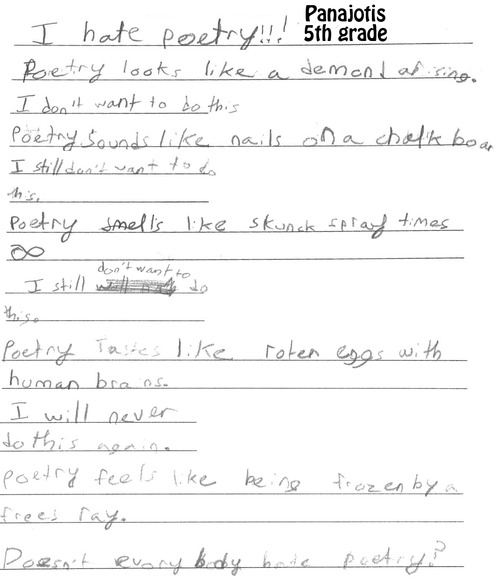 I hate poetry!!!
Panajotis
5th grade
Poetry looks like a demond arising.
I don't want to do this
Poetry sounds like nails on a chalk boar
I still don't want to do
this.
Poetry smells like skunck spray times
∞
don't want to
I still do
this.
Poetry Tastes like roten eggs with
human brains.
I will never
do this again.
Poetry feels like being frozen by a
frees ray.
Doesn't every body hate poetry?